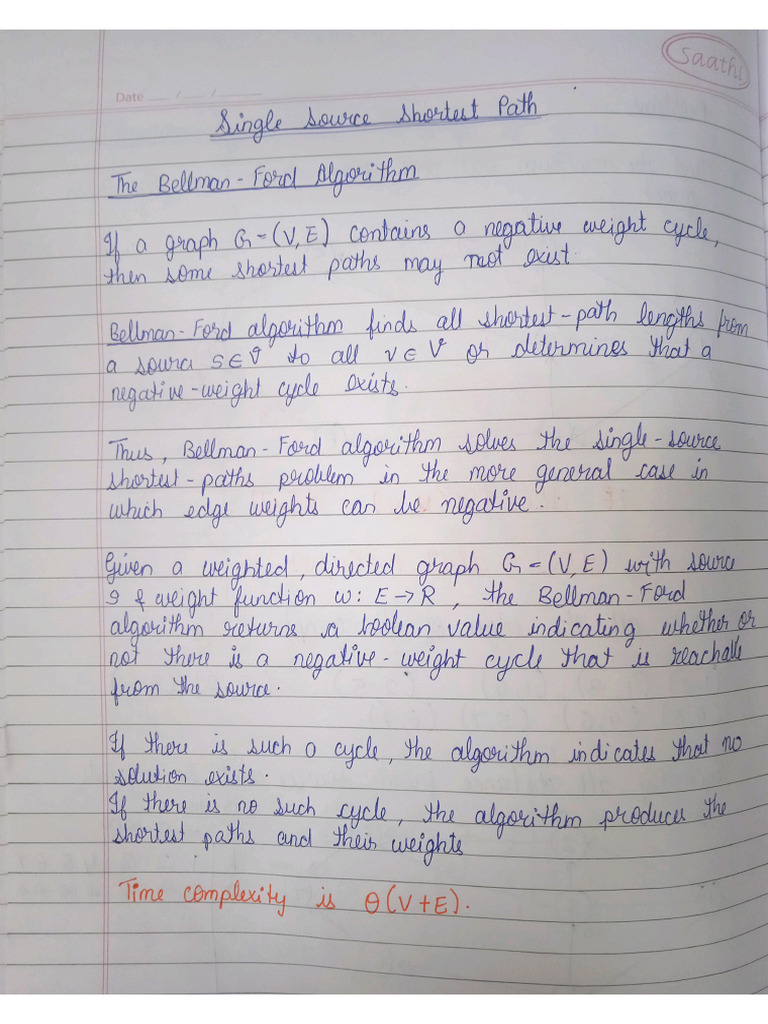 Saathi
Date ___ / ___ / ______
Single Source Shortest Path
The Bellman-Ford Algorithm
If a graph G=(V,E) contains a negative weight cycle,
then some shortest paths may not exist.
Bellman-Ford algorithm finds all shortest-path lengths from
a source s∈V to all v∈V or determines that a
negative-weight cycle exists.
Thus, Bellman-Ford algorithm solves the single-source
shortest-paths problem in the more general case in
which edge weights can be negative.
Given a weighted, directed graph G=(V,E) with source
s & weight function w: E→R, the Bellman-Ford
algorithm returns a boolean value indicating whether or
not there is a negative-weight cycle that is reachable
from the source.
If there is such a cycle, the algorithm indicates that no
solution exists.
If there is no such cycle, the algorithm produces the
shortest paths and their weights
Time complexity is θ(V+E).